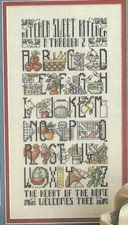 KITCHEN SWEET KITCHEN
A THROUGH Z
A B C D
E F G H
I J K L
M N O P
Q R
S T U V
W X Y Z
THE HEART OF THE HOME
WELCOMES THEE